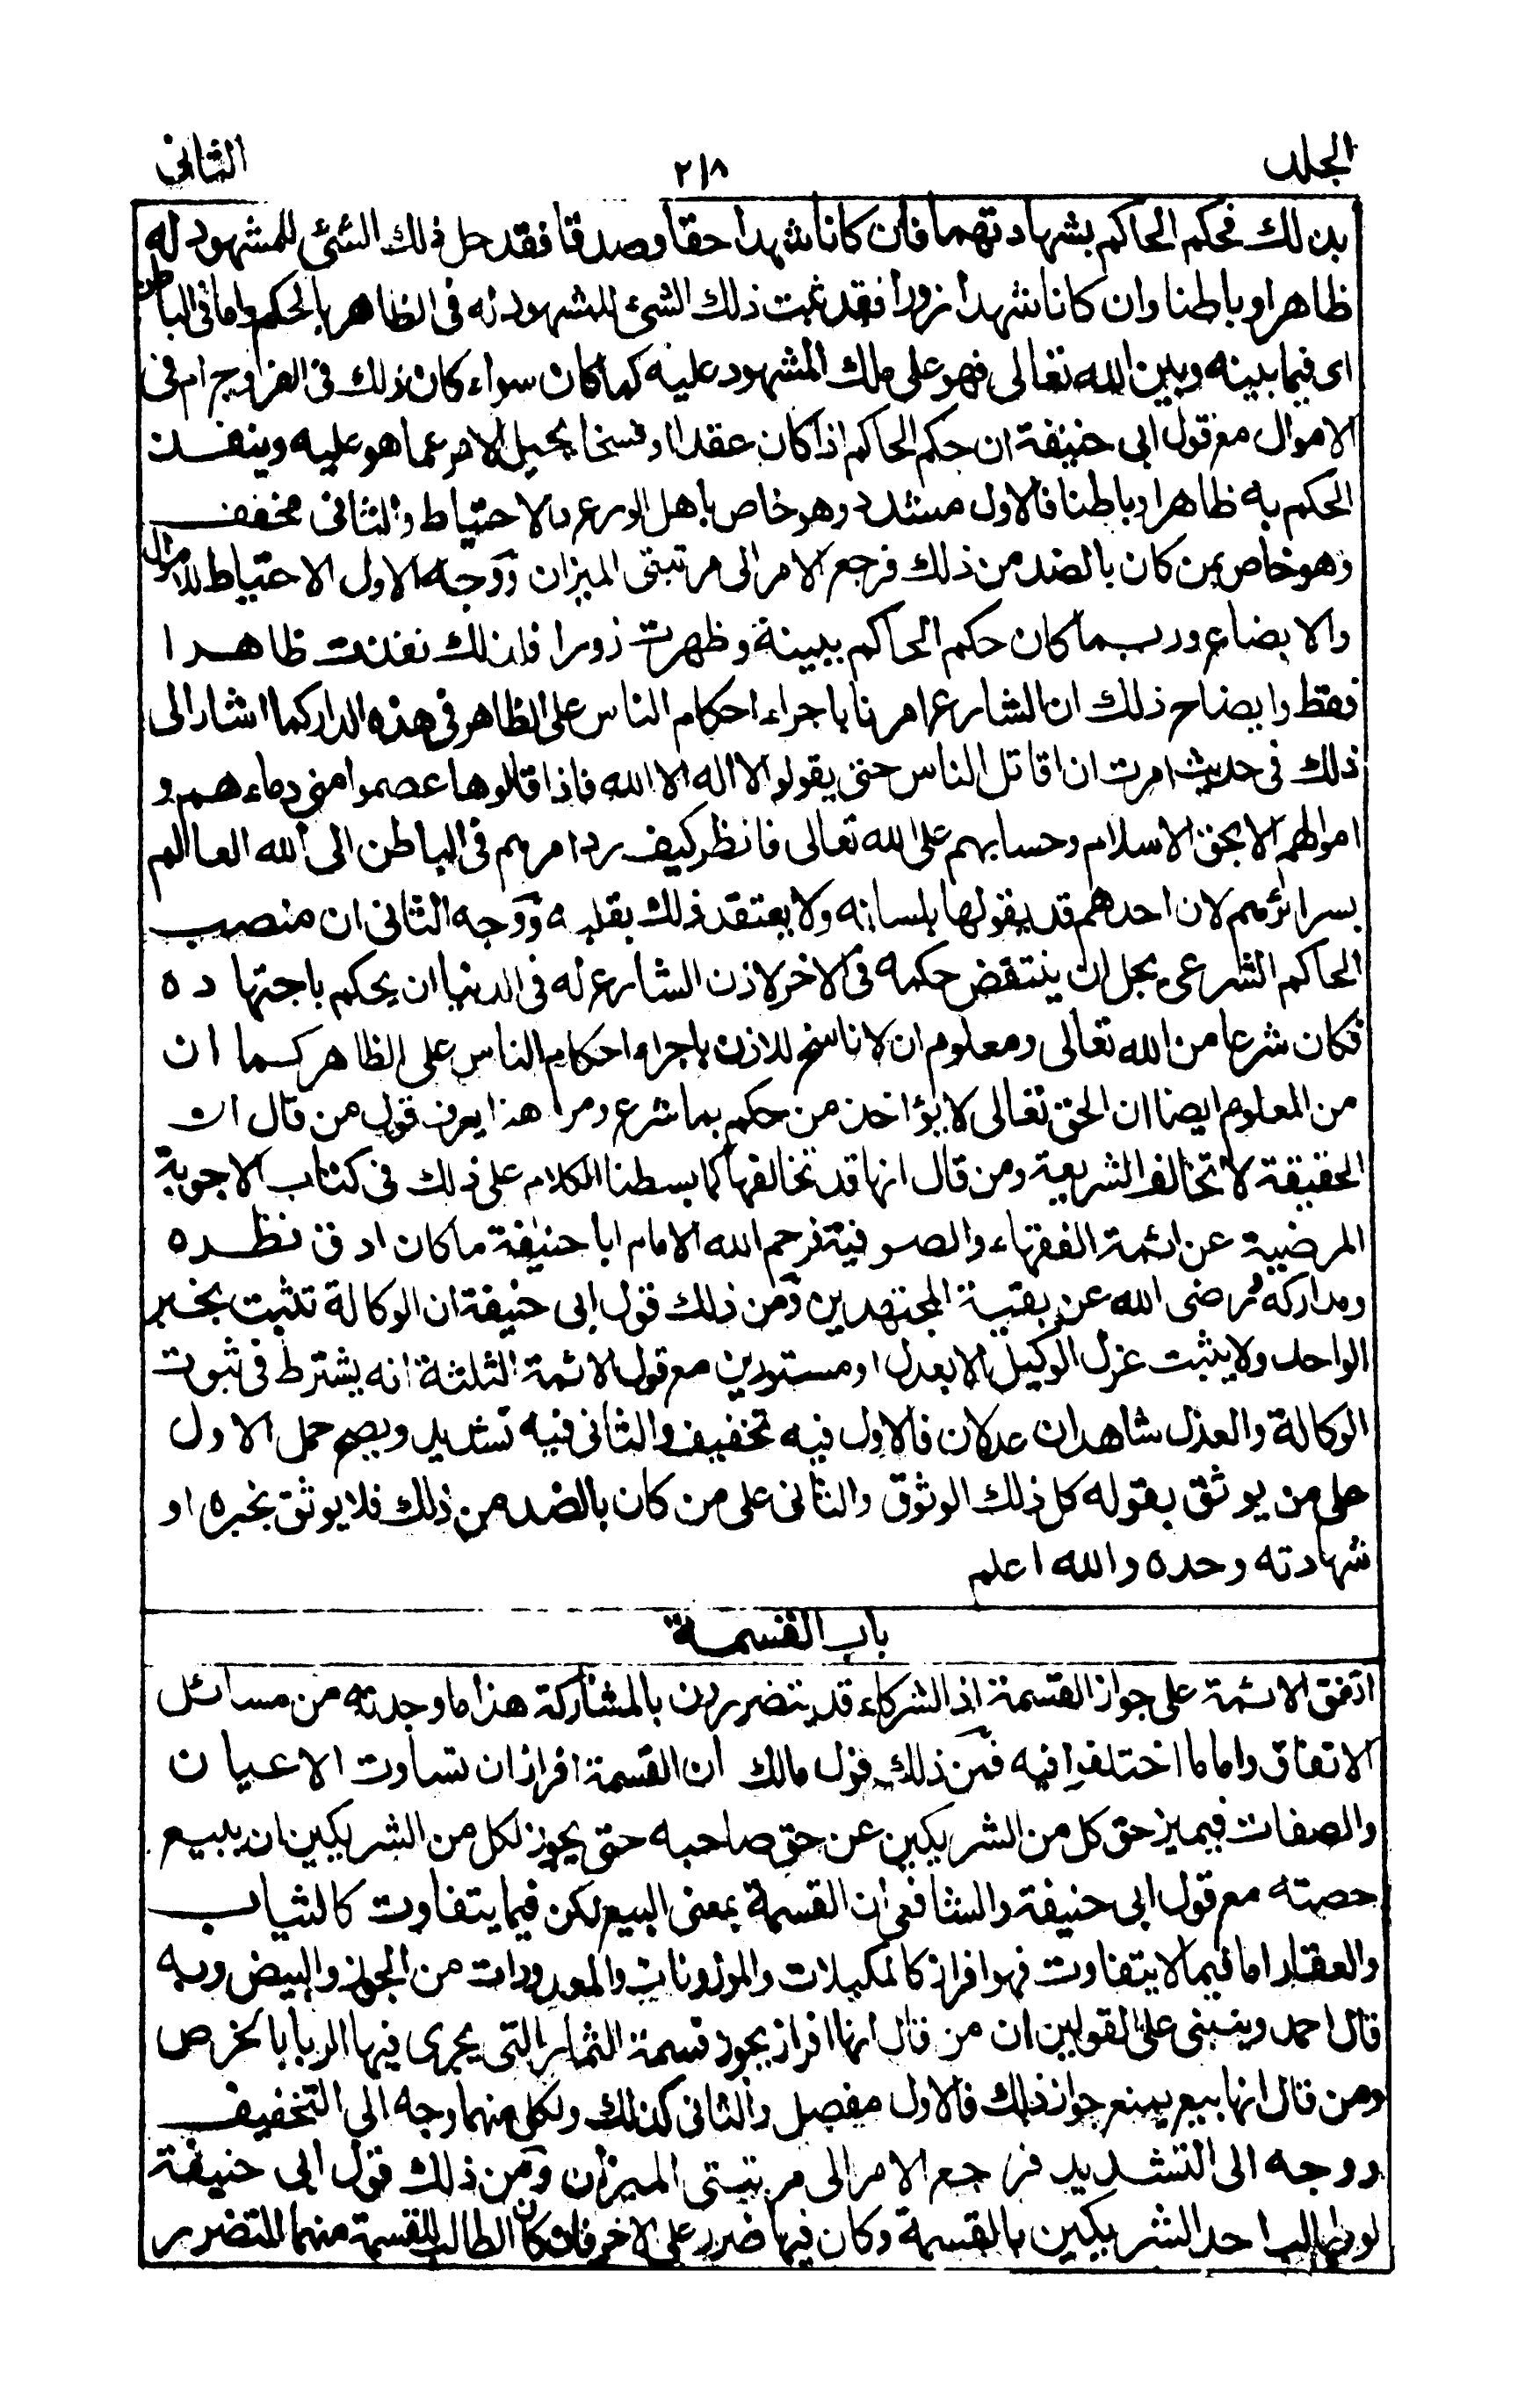 الجلد ٢١٨ الثانى
بذلك فحكم الحاكم بشهادتهما فان كانا شهدا حقا وصدقا فقد حل ذلك الشئ للمشهود له
ظاهرا وباطنا وان كانا شهدا زورا فقد ثبت ذلك الشئ للمشهود له فى الظاهر بالحكم واما فى الباطن
اى فيما بينه وبين الله تعالى فهو على ملك المشهود عليه كما كان سواء كان ذلك فى الفزاوج ام فى
الاموال مع قول ابى حنيفة ان حكم الحاكم اذا كان عقدا او فسخا يحيل الامر عما هو عليه وينفذ
الحكم به ظاهرا وباطنا فالاول مشدد وهو خاص باهل الورع والاحتياط والثانى مخفف
وهو خاص بمن كان بالضد من ذلك فرجع الامر الى مرتبتى الميزان ووجه الاول الاحتياط للاموال
والابضاع وربما كان حكم الحاكم ببينة وظهرت زورا فلذلك نفذت ظاهرا
فقط وايضاح ذلك ان الشارع امرنا باجراء احكام الناس على الظاهر فى هذه الدار كما اشار الى
ذلك فى حديث امرت ان اقاتل الناس حتى يقولوا لا اله الا الله فاذا قالوها عصموا منى دماءهم و
اموالهم الا بحق الاسلام وحسابهم على الله تعالى فانظر كيف رد امرهم فى الباطن الى الله العالم
بسرائرهم لان احدهم قد يقولها بلسانه ولا يعتقد ذلك بقلبه ووجه الثانى ان منصب
الحاكم الشرعى يجل ان ينتقض حكمه فى الاخر لاذن الشارع له فى الدنيا ان يحكم باجتهاده
فكان شرعا من الله تعالى ومعلوم ان لا ناسخ للاذن باجراء احكام الناس على الظاهر كما ان
من المعلوم ايضا ان الحق تعالى لا يؤاخذ من حكم بما شرع ومرا هذا يعرف قول من قال ان
الحقيقة لا تخالف الشريعة ومن قال انها قد تخالفها كما بسطنا الكلام على ذلك فى كتاب الاجوبة
المرضية عن ائمة الفقهاء والصوفية فرحم الله الامام ابا حنيفة ما كان ادق نظره
ومداركه ورضى الله عن بقية المجتهدين ومن ذلك قول ابى حنيفة ان الوكالة تثبت بخبر
الواحد ولا يثبت عزل الوكيل الا بعدل او مستورين مع قول الائمة الثلثة انه يشترط فى ثبوت
الوكالة والعزل شاهدان عدلان فالاول فيه تخفيف والثانى فيه تشديد ويصح حمل الاول
على من يوثق بقوله كل ذلك الوثوق والثانى على من كان بالضد من ذلك فلا يوثق بخبره او
شهادته وحده والله اعلم
باب القسمة
اتفق الائمة على جواز القسمة اذ الشركاء قد يتضررون بالمشاركة هذا ما وجدته من مسائل
الاتفاق واما ما اختلفوا فيه فمن ذلك قول مالك ان القسمة افراز ان تساوت الاعيان
والصفات فيميز حق كل من الشريكين عن حق صاحبه حتى يجوز لكل من الشريكين ان يبيع
حصته مع قول ابى حنيفة والشافعى ان القسمة بمعنى البيع لكن فيما يتفاوت كالثياب
والعقار اما فيما لا يتفاوت فهو افراز كالمكيلات والموزونات والمعدودات من الجوز والبيض وبه
قال احمد وينبنى على القولين ان من قال انها افراز يجوز قسمة الثمار التى يجرى فيها الربا بالخرص
ومن قال انها بيع يمنع جواز ذلك فالاول مفصل والثانى كذلك ولكل منهما وجه الى التخفيف
ووجه الى التشديد فرجع الامر الى مرتبتى الميزان ومن ذلك قول ابى حنيفة
لو طالب احد الشريكين بالقسمة وكان فيها ضرر على الاخر فان كان الطالب للقسمة منهما المتضرر